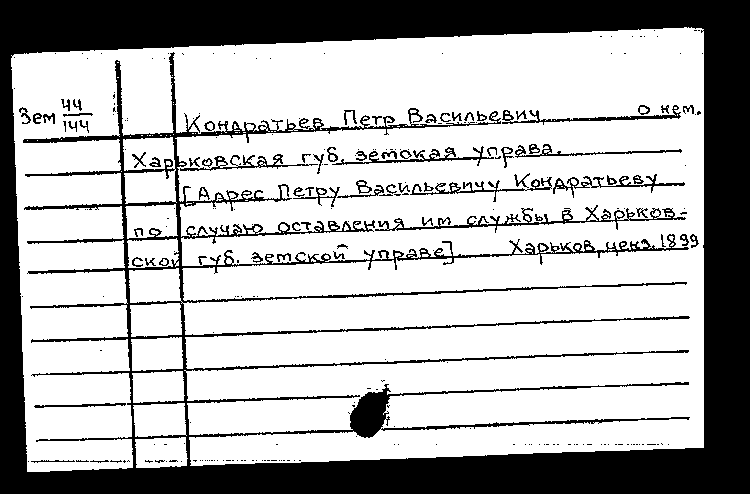 Зем 44/144 Кондратьев, Петр Васильевич о нем.
Харьковская губ. земская управа.
[Адрес Петру Васильевичу Кондратьеву
по случаю оставления им службы в Харьков-
ской губ. земской управе] Харьков, ценз. 1899